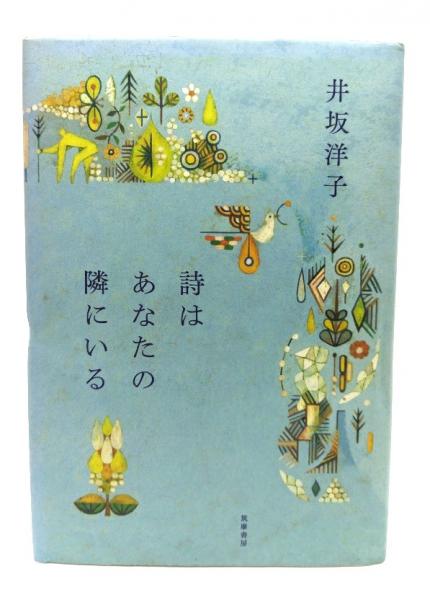 井坂洋子
詩は
あなたの
隣にいる
筑摩書房